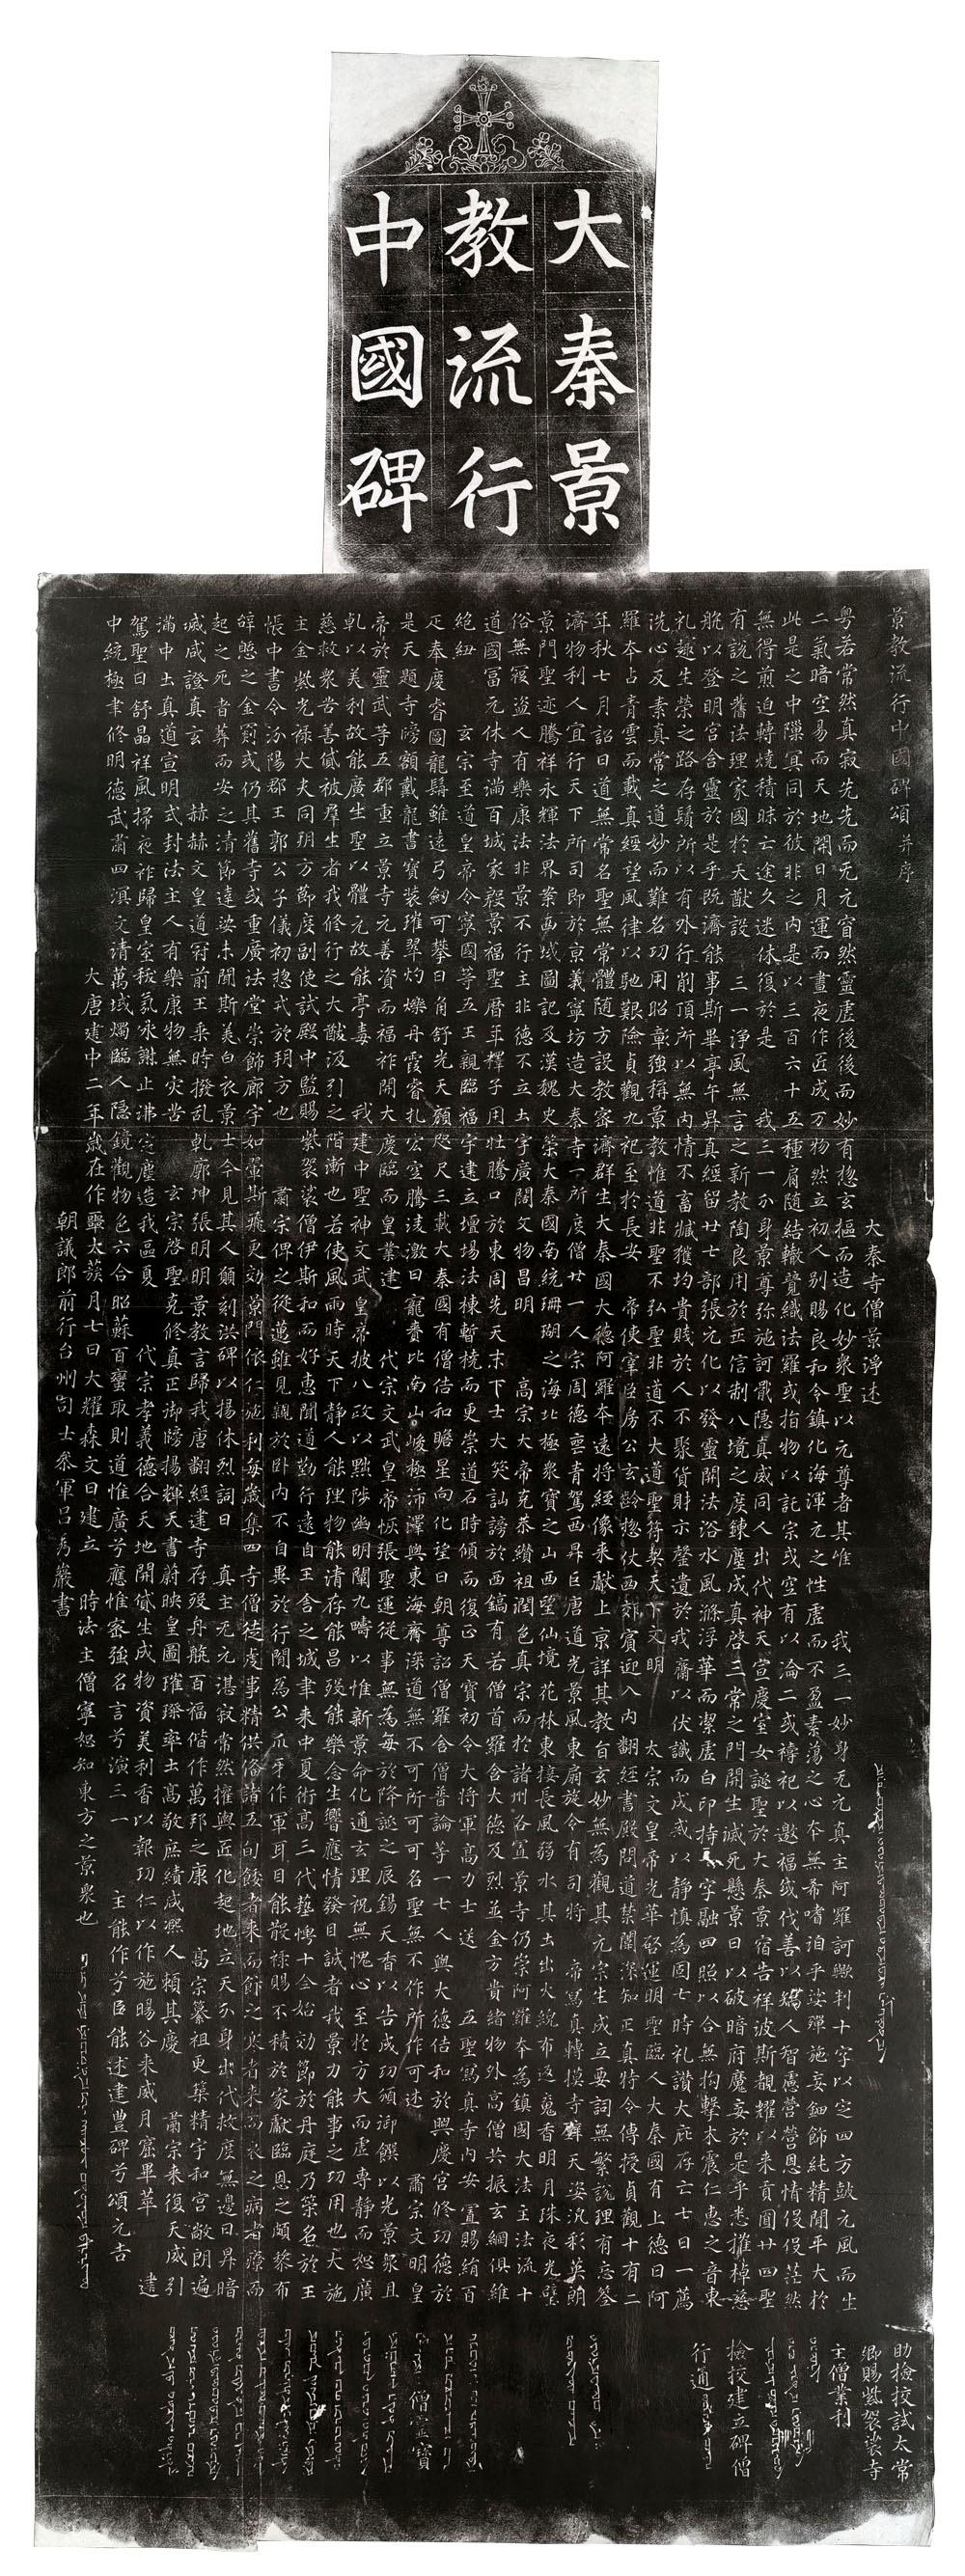 大秦景
教流行
中國碑
景教流行中國碑頌 并序
大秦寺僧景淨述
粵若常然真寂先先而无元窅然靈虛後後而妙有惣玄樞而造化妙衆聖以元尊者其唯 我三一妙身无元真主阿羅訶歟判十字以定四方鼓元風而生
二氣暗空易而天地開日月運而晝夜作匠成万物然立初人別賜良和令鎮化海渾元之性虛而不盈素蕩之心本無希嗜洎乎娑殫施妄鈿飾純精閒平大於
此是之中隟冥同於彼非之內是以三百六十五種肩隨結轍競織法羅或指物以託宗或空有以淪二或禱祀以邀福或伐善以矯人智慮營營恩情役役茫然
無得煎迫轉燒積昧亡途久迷休復於是 我三一分身景尊彌施訶戢隱真威同人出代神天宣慶室女誕聖於大秦景宿告祥波斯覩耀以來貢圓廿四聖
有說之舊法理家國於大猷設 三一淨風無言之新教陶良用於正信制八境之度鍊塵成真啓三常之門開生滅死懸景日以破暗府魔妄於是乎悉摧棹慈
航以登明宮含靈於是乎既濟能事斯畢亭午昇真經留廿七部張元化以發靈關法浴水風滌浮華而潔虛白印持十字融四照以合無拘擊木震仁惠之音東
礼趣生榮之路存鬚所以有外行削頂所以無內情不畜臧獲均貴賤於人不聚貨財示罄遺於我齋以伏識而成戒以靜慎為固七時礼讚大庇存亡七日一薦
洗心反素真常之道妙而難名功用昭彰強稱景教惟道非聖不弘聖非道不大道聖符契天下文明 太宗文皇帝光華啓運明聖臨人大秦國有上德曰阿
羅本占青雲而載真經望風律以馳艱險貞觀九祀至於長安 帝使宰臣房公玄齡惣仗西郊賓迎入內翻經書殿問道禁闈深知正真特令傳授貞觀十有二
年秋七月詔曰道無常名聖無常體隨方設教密濟群生大秦國大德阿羅本遠將經像來獻上京詳其教旨玄妙無為觀其元宗生成立要詞無繁說理有忘筌
濟物利人宜行天下所司即於京義寧坊造大秦寺一所度僧廿一人宗周德喪青駕西昇巨唐道光景風東扇旋令有司將 帝寫真轉摸寺壁天姿汎彩英朗
景門聖迹騰祥永輝法界案西域圖記及漢魏史策大秦國南統珊瑚之海北極衆寶之山西望仙境花林東接長風弱水其土出火綄布返魂香明月珠夜光璧
俗無寇盜人有樂康法非景不行主非德不立土宇廣闊文物昌明 高宗大帝克恭纘祖潤色真宗而於諸州各置景寺仍崇阿羅本為鎮國大法主法流十
道國冨元休寺滿百城家殷景福聖曆年釋子用壯騰口於東周先天末下士大笑訕謗於西鎬有若僧首羅含大德及烈並金方貴緒物外高僧共振玄綱俱維
絕紐 玄宗至道皇帝令寧國等五王親臨福宇建立壇場法棟暫橈而更崇道石時傾而復正天寶初令大將軍高力士送 五聖寫真寺內安置賜絹百
疋奉慶睿圖龍髯雖遠弓劍可攀日角舒光天顏咫尺三載大秦國有僧佶和瞻星向化望日朝尊詔僧羅含僧普論等一七人與大德佶和於興慶宮修功德於
是天題寺牓額戴龍書寶裝璀翠灼爍丹霞睿扎宏空騰淩激日寵賚比南山峻極沛澤與東海齊深道無不可所可可名聖無不作所作可述 肅宗文明皇
帝於靈武等五郡重立景寺元善資而福祚開大慶臨而皇業建 代宗文武皇帝恢張聖運從事無為每於降誕之辰錫天香以告成功頒御饌以光景衆且
乹以美利故能廣生聖以體元故能亭毒 我建中聖神文武皇帝披八政以黜陟幽明闡九疇以惟新景命化通玄理祝無愧心至於方大而虛專靜而恕廣
慈救衆苦善貸被羣生者我修行之大猷汲引之階漸也若使風雨時天下靜人能理物能清存能昌歿能樂念生響應情發目誠者我景力能事之功用也大施
主金紫光祿大夫同朔方節度副使試殿中監賜紫袈裟僧伊斯和而好惠聞道勤行遠自王舍之城聿來中夏術高三代藝博十全始効節於丹庭乃策名於王
帳中書令汾陽郡王郭公子儀初惣戎於朔方也 肅宗俾之從邁雖見親於卧內不自異於行間為公爪牙作軍耳目能散祿賜不積於家獻臨恩之頗黎布
辭憩之金罽或仍其舊寺或重廣法堂崇飾廊宇如翬斯飛更効景門依仁施利每歲集四寺僧徒虔事精供俻諸五旬餧者來而飰之寒者來而衣之病者療而
起之死者葬而安之清節達娑未聞斯美白衣景士今見其人願刻洪碑以揚休烈詞曰 真主无元湛寂常然權輿匠化起地立天分身出代救度無邊日昇暗
滅咸證真玄 赫赫文皇道冠前王乘時撥乱乹廓坤張明明景教言歸我唐翻經建寺存歿舟航百福偕作萬邦之康 高宗纂祖更築精宇和宮敞朗遍
滿中土真道宣明式封法主人有樂康物無灾苦 玄宗啓聖克修真正御牓揚輝天書蔚映皇圖璀璨率土高敬庶績咸熙人賴其慶 肅宗來復天威引
駕聖日舒晶祥風掃夜祚歸皇室祅氛永謝止沸定塵造我區夏 代宗孝義德合天地開貸生成物資美利香以報功仁以作施暘谷來威月窟畢萃 建
中統極聿修明德武肅四溟文清萬域燭臨人隱鏡觀物色六合昭蘇百蠻取則道惟廣兮應惟密強名言兮演三一 主能作兮臣能述建豐碑兮頌元吉
大唐建中二年歲在作噩太蔟月七日大耀森文日建立 時法主僧寧恕知東方之景衆也
朝議郎前行台州司士叅軍呂秀巖書
助撿挍試太常
卿賜紫袈裟寺
主僧業利
撿挍建立碑僧
行通
僧靈寶